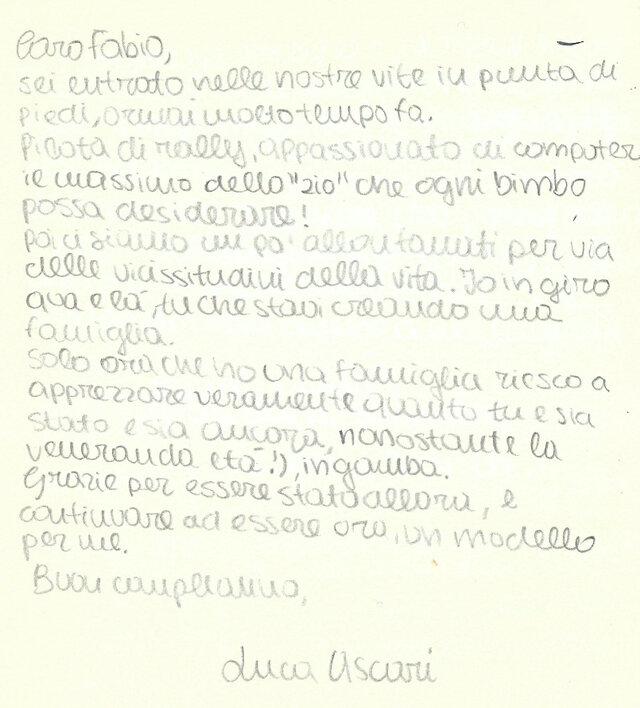 Caro Fabio,
sei entrato nelle nostre vite in punta di
piedi, ormai molto tempo fa.
Pilota di rally, appassionato di computer
il massimo dello "zio" che ogni bimbo
possa desiderare!
poi ci siamo un po' allontanati per via
delle vicissitudini della vita. Io in giro
qua e là, tu che stavi creando una
famiglia.
Solo ora che ho una famiglia riesco a
apprezzare veramente quanto tu e sia
stato e sia ancora, nonostante la
veneranda età!), in gamba.
Grazie per essere stato allora, e
continuare ad essere ora, un modello
per me.
Buon compleanno,
Luca Ascari